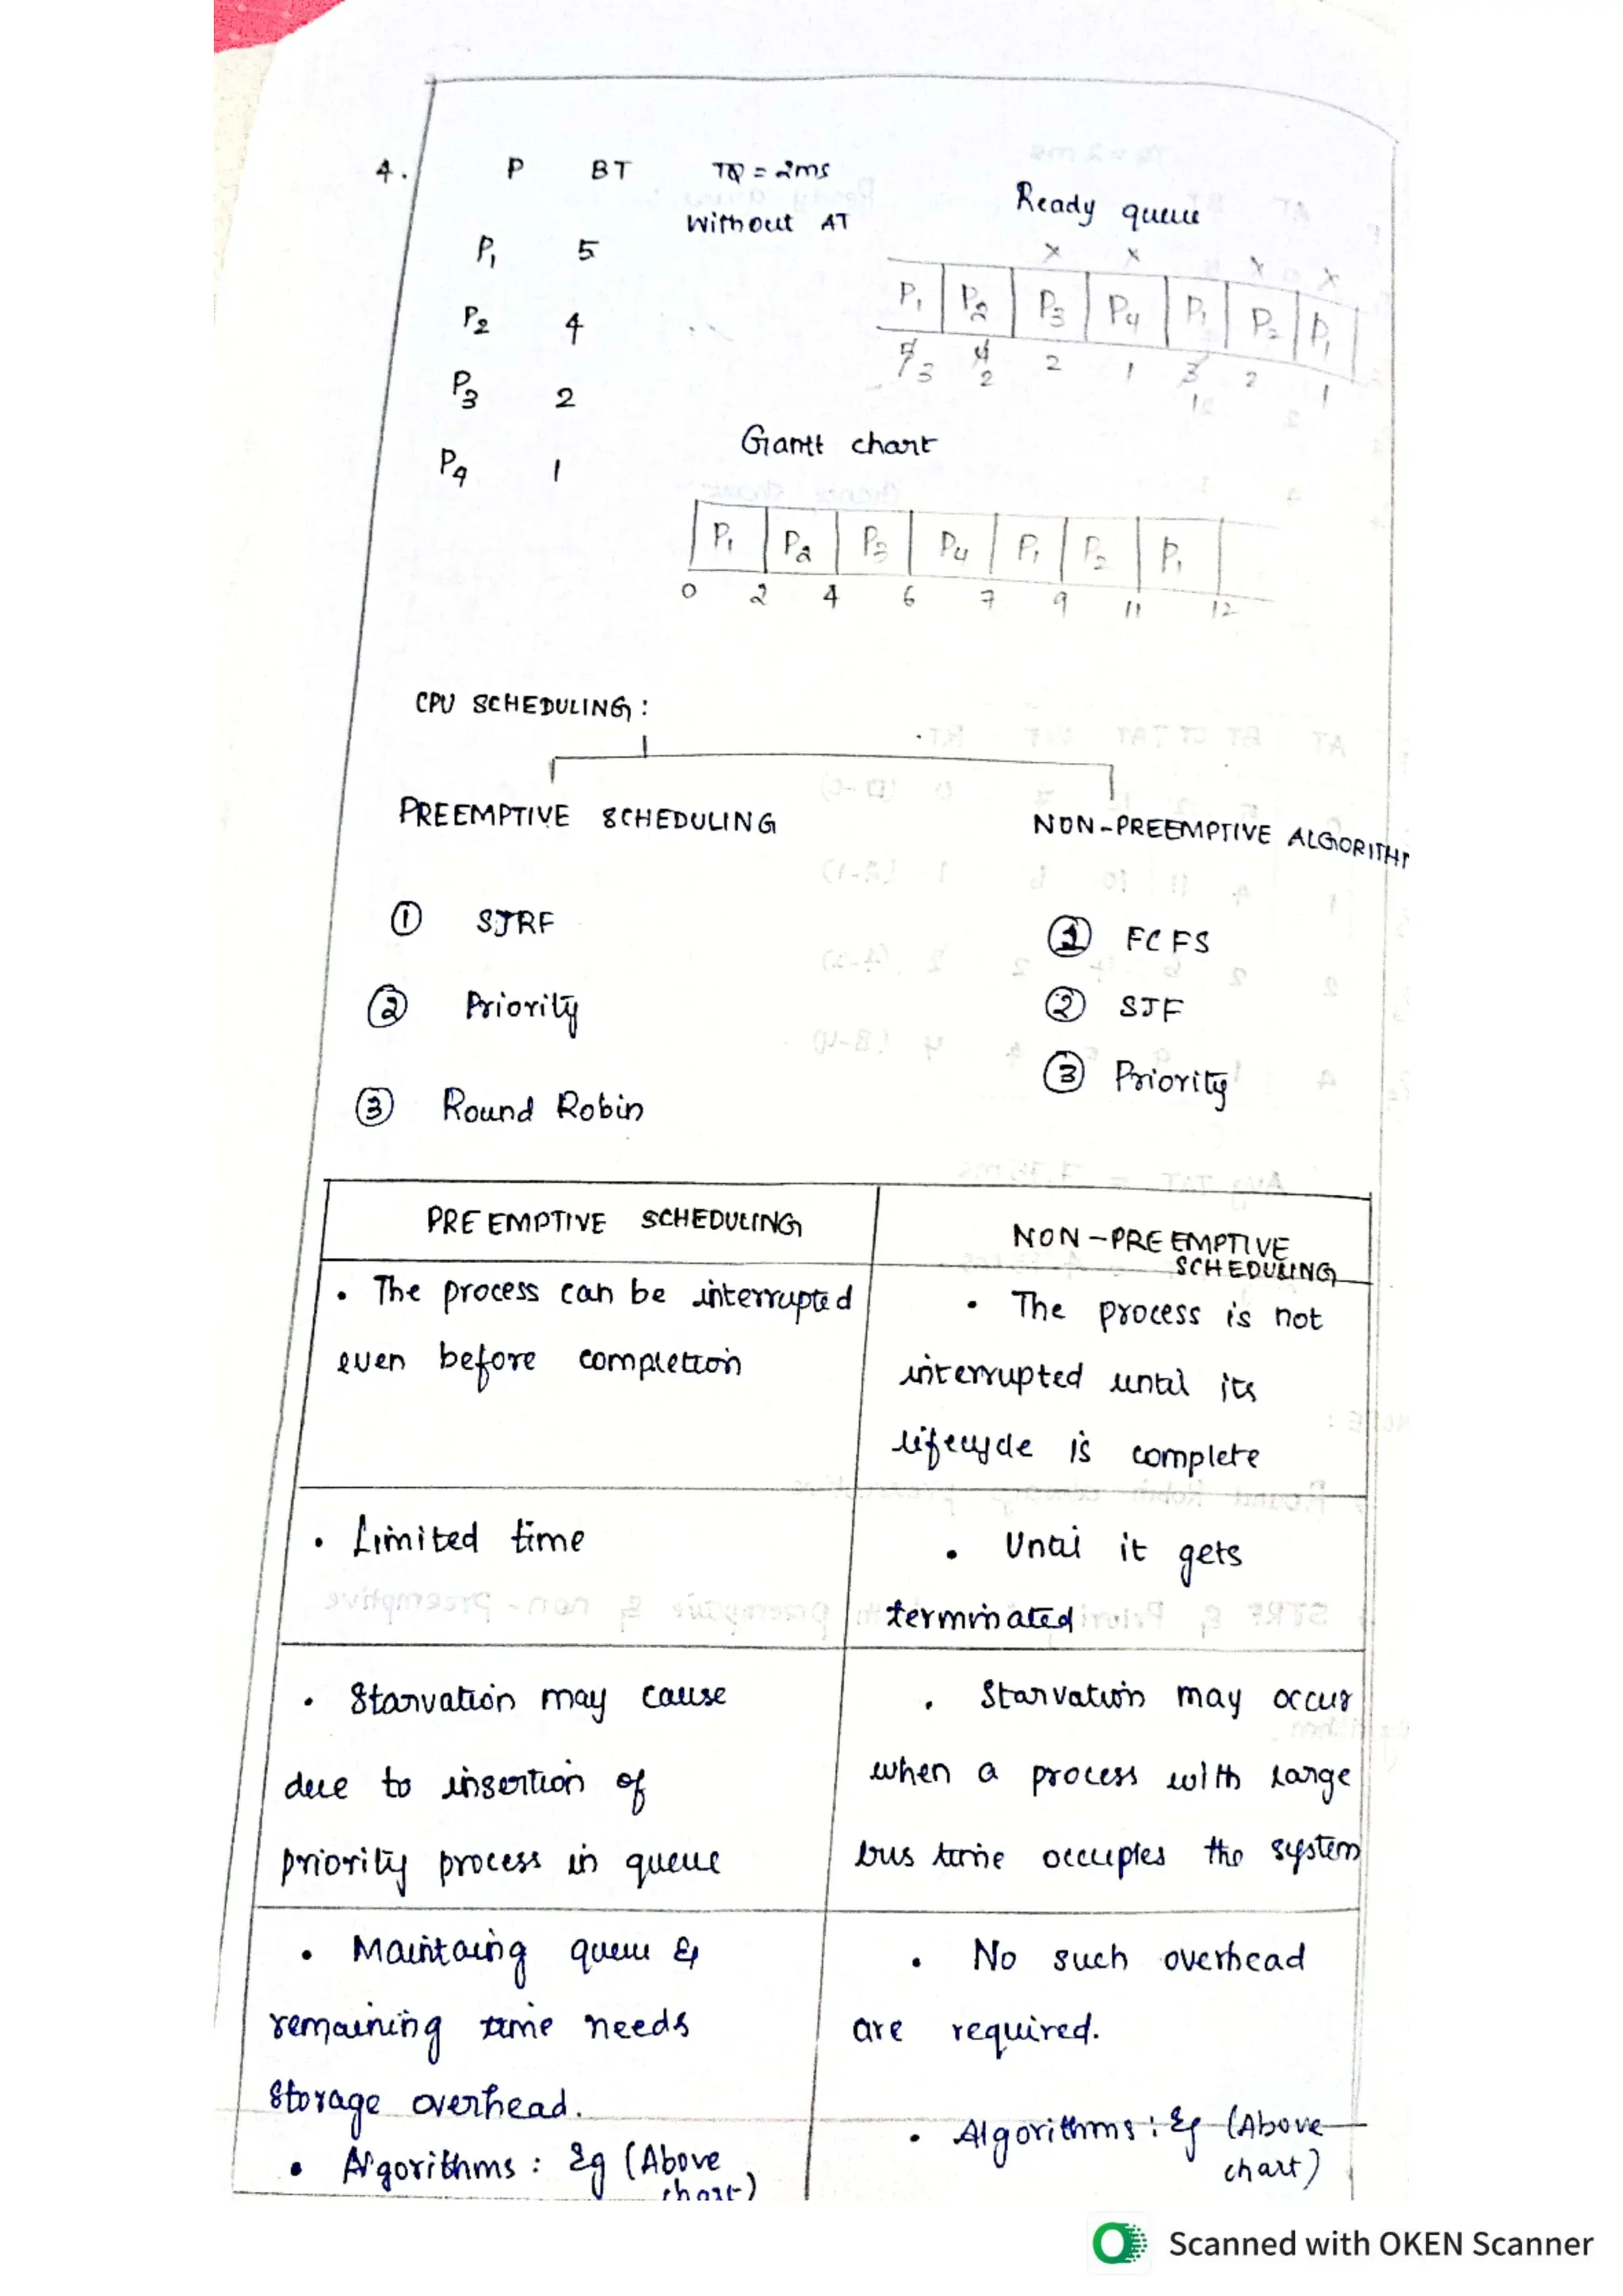 4. P BT TQ = 2ms
Without AT
Ready queue
P1 5
x x x x
P1 P2 P3 P4 P1 P2 P1
P2 4
5 3 4 2 2 1 3 1 2 1
P3 2
Giantt chart
P4 1
P1 P2 P3 P4 P1 P2 P1
0 2 4 6 7 9 11 12
CPU SCHEDULING :
PREEMPTIVE SCHEDULING
NON-PREEMPTIVE ALGORITHM
① SJRF
① FCFS
② Priority
② SJF
③ Priority
③ Round Robin
PREEMPTIVE SCHEDULING
NON-PREEMPTIVE
SCHEDULING
• The process can be interrupted
even before completion
• The process is not
interrupted until its
lifecycle is complete
• Limited time
• Until it gets
terminated
• Starvation may cause
due to insertion of
priority process in queue
• Starvation may occur
when a process with large
bus time occupies the system
• Maintaing queue &
remaining time needs
storage overhead.
• No such overhead
are required.
• Algorithms : Eg (Above
chart)
• Algorithms : Eg (Above
chart)
Scanned with OKEN Scanner